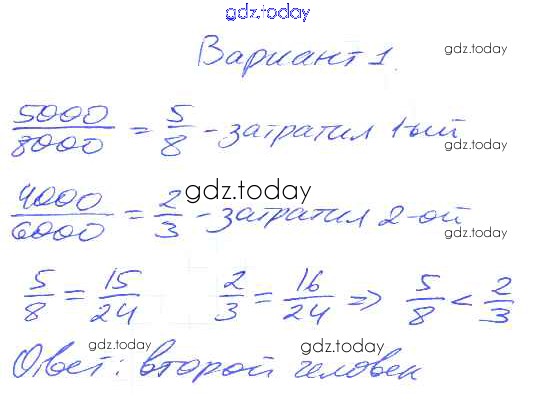 gdz.today
Вариант 1. gdz.today
5000/8000 = 5/8 - затратил 1ый
gdz.today
gdz.today
4000/6000 = 2/3 - затратил 2-ой
gdz.today
5/8 = 15/24 2/3 = 16/24 => 5/8 < 2/3
gdz.today gdz.today
Ответ: второй человек